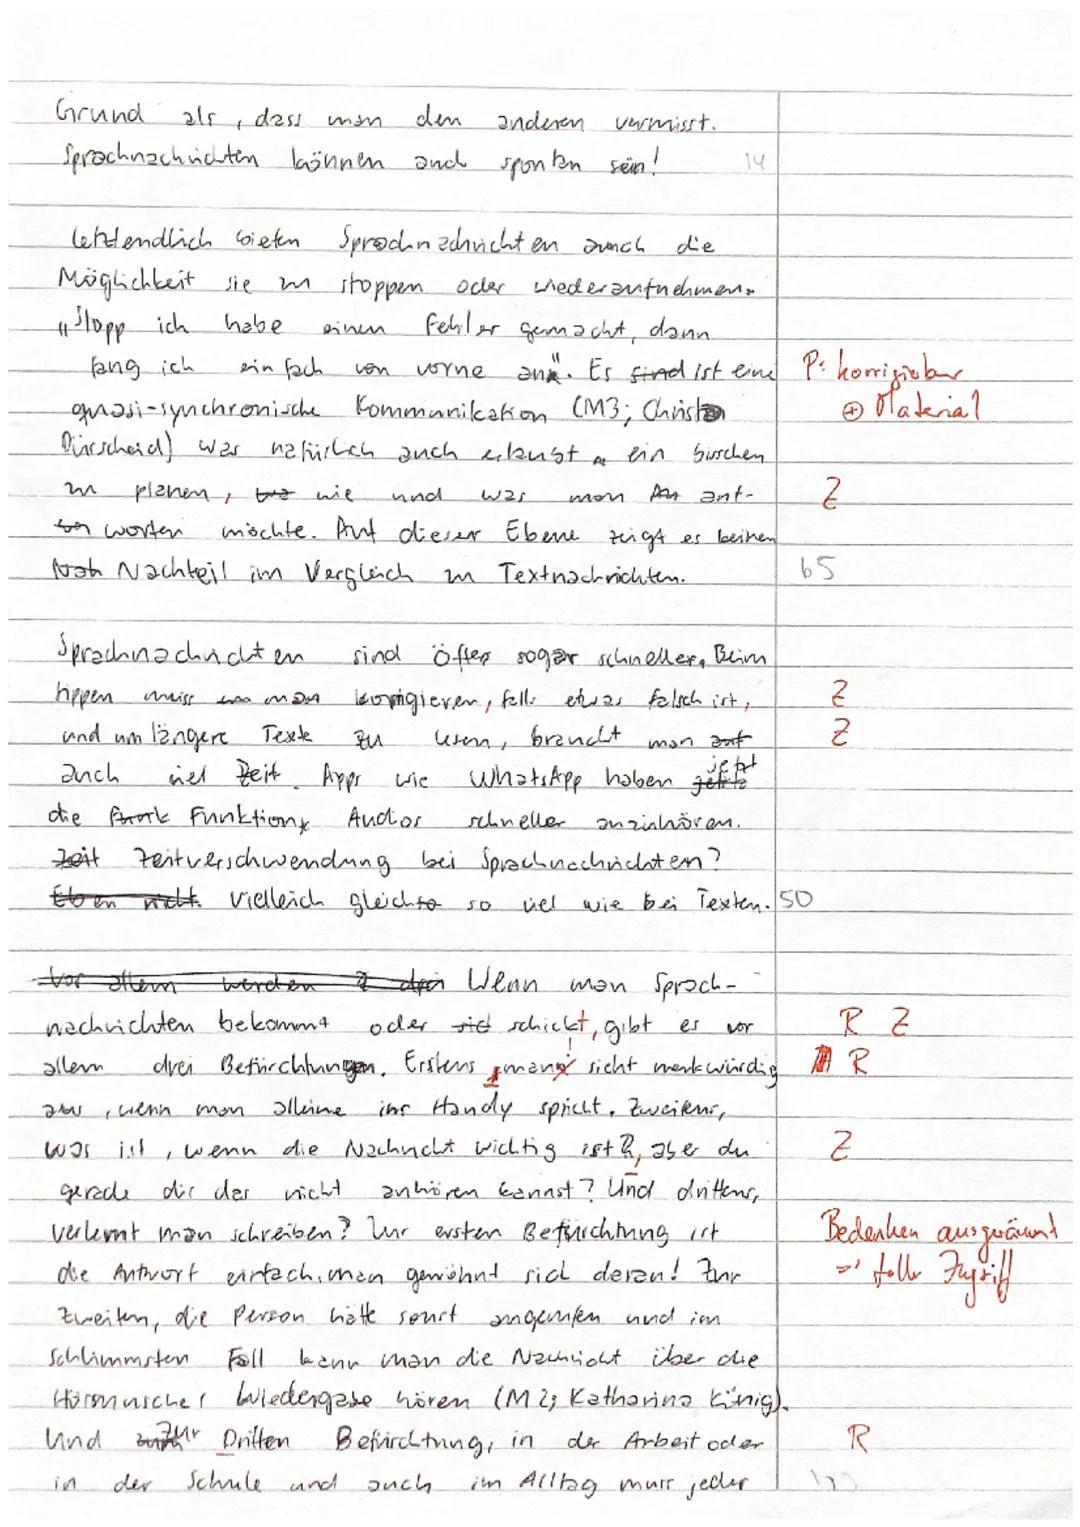 Grund als, dass man den anderen vermisst.
Sprachnachrichten können auch spontan sein! 14
Letztendlich bieten Sprachnachrichten auch die
Möglichkeit sie zu stoppen oder wiederaufnehmen.
"Stopp ich habe einen Fehler gemacht, dann
fang ich einfach von vorne an". Es sind ist eine P: korrigierbar
quasi-synchronische Kommunikation (M3; Christa ⊕ Material
Dürscheid) was natürlich auch erlaubt ein bisschen
zu planen, wie und was man ant- Z
worten möchte. Auf dieser Ebene zeigt es keinen
Nachteil im Vergleich zu Textnachrichten. 65
Sprachnachrichten sind öfter sogar schneller. Beim
tippen muss man korrigieren, falls etwas falsch ist, Z
und um längere Texte zu lesen, braucht man auf Z
auch viel Zeit. Apps wie WhatsApp haben jetzt
die Funktion, Audios schneller anzuhören.
Zeit Zeitverschwendung bei Sprachnachrichten?
Eben nicht. Vielleich gleich so viel wie bei Texten. 50
Vor allem werden Wenn man Sprach-
nachrichten bekommt oder schickt, gibt es vor R Z
allem drei Befürchtungen. Erstens man sieht merkwürdig R
aus, wenn man alleine ins Handy spricht. Zweitens,
was ist, wenn die Nachricht wichtig ist, aber du Z
gerade dir das nicht anhören kannst? Und drittens,
verlernt man schreiben? Zur ersten Befürchtung ist Bedenken ausgeräumt
die Antwort einfach: man gewöhnt sich daran! Zur => toller Zugriff
Zweiten, die Person hätte sonst angerufen und im
Schlimmsten Fall kann man die Nachricht über die
Hörmuschel Wiedergabe hören (M2; Katharina König).
Und Zur Dritten Befürchtung, in der Arbeit oder R
in der Schule und auch im Alltag muss jeder